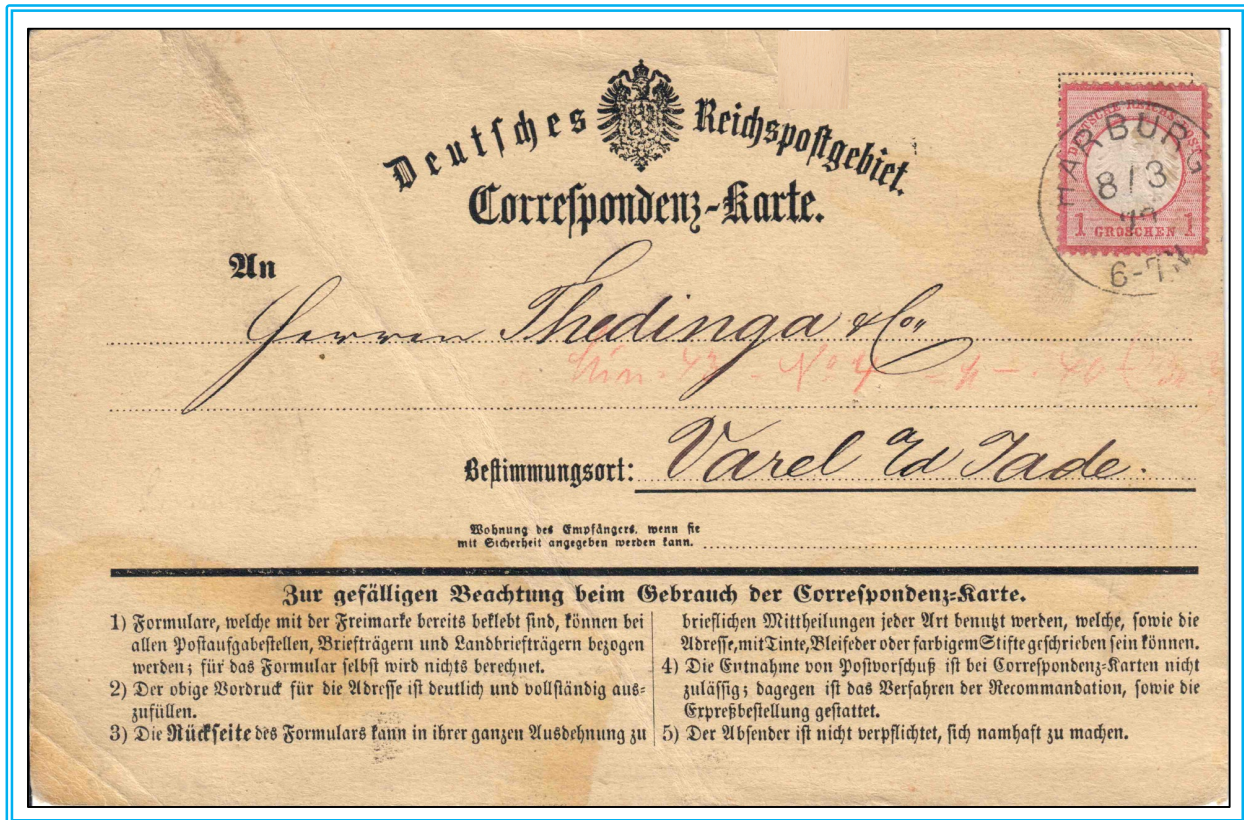 Deutsches Reichspostgebiet.
Correspondenz-Karte.
DEUTSCHE REICHS-POST
1 GROSCHEN 1
HARBURG
8/3
6-7N
An
Herren Thedinga & Co
No 4
Bestimmungsort: Varel Jade.
Wohnung des Empfängers, wenn sie
mit Sicherheit angegeben werden kann.
Zur gefälligen Beachtung beim Gebrauch der Correspondenz-Karte.
1) Formulare, welche mit der Freimarke bereits beklebt sind, können bei
allen Postaufgabestellen, Briefträgern und Landbriefträgern bezogen
werden; für das Formular selbst wird nichts berechnet.
2) Der obige Vordruck für die Adresse ist deutlich und vollständig aus-
zufüllen.
3) Die Rückseite des Formulars kann in ihrer ganzen Ausdehnung zu
brieflichen Mittheilungen jeder Art benutzt werden, welche, sowie die
Adresse, mit Tinte, Bleifeder oder farbigem Stifte geschrieben sein können.
4) Die Entnahme von Postvorschuß ist bei Correspondenz-Karten nicht
zulässig; dagegen ist das Verfahren der Recommandation, sowie die
Expreßbestellung gestattet.
5) Der Absender ist nicht verpflichtet, sich namhaft zu machen.